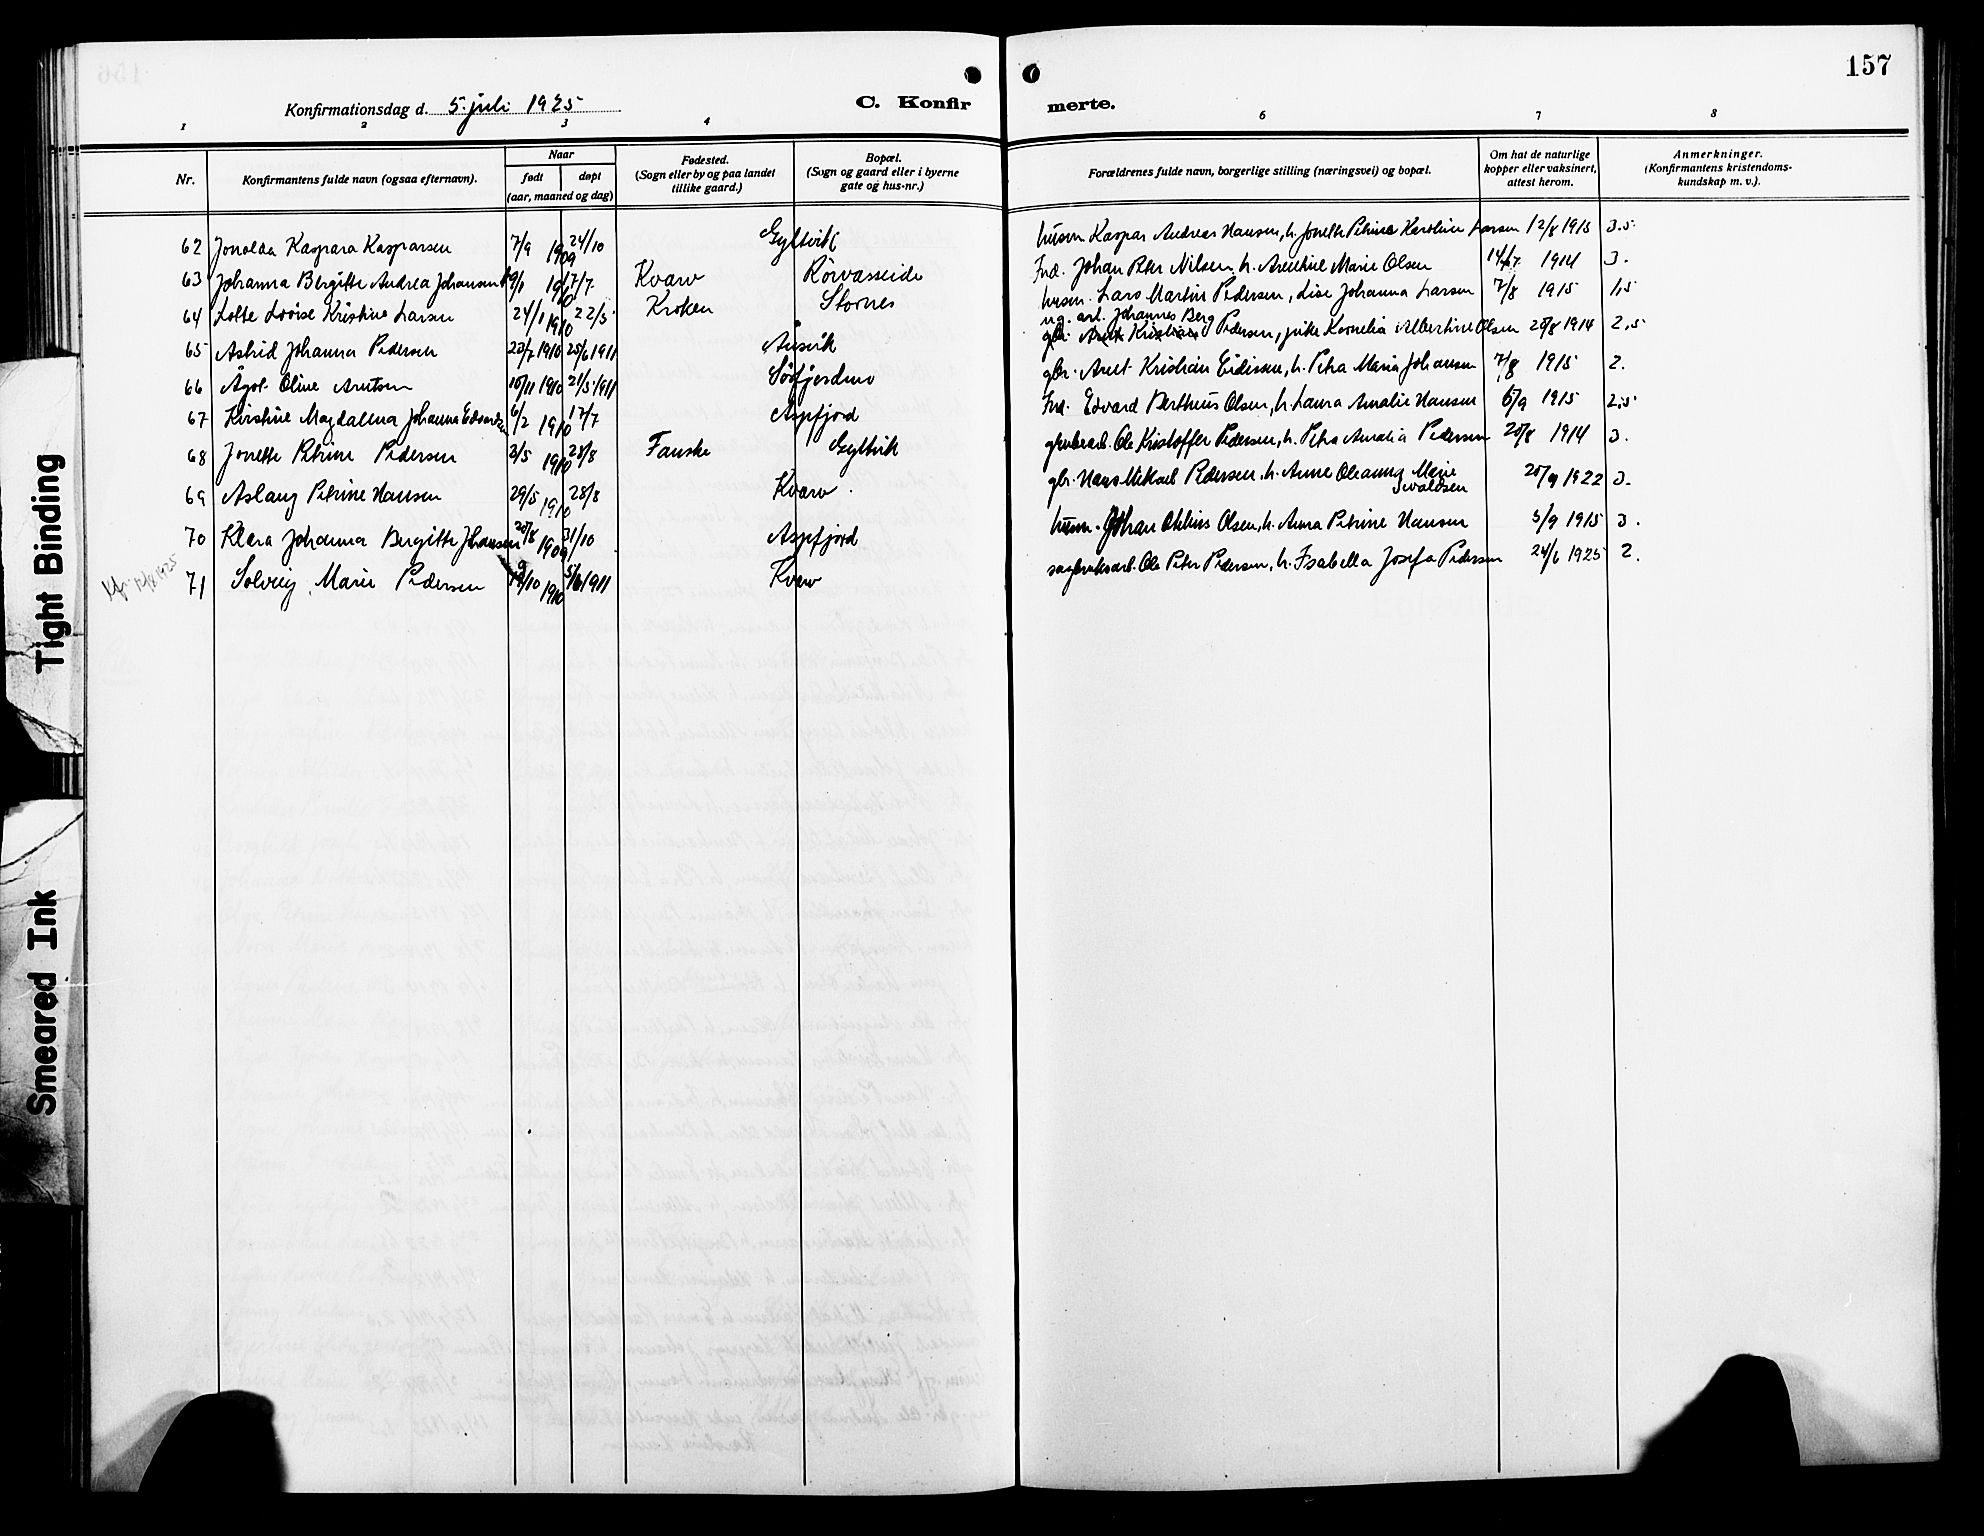 157
Konfirmationsdag d. 5. juli 1925
C. Konfir merte.
1 2 3 4 6 7 8
Nr.
Konfirmantens fulde navn (ogsaa efternavn).
Naar
født døpt
(aar, maaned og dag)
Fødested.
(Sogn eller by og paa landet
tillike gaard.)
Bopæl.
(Sogn og gaard eller i byerne
gate og hus-nr.)
Forældrenes fulde navn, borgerlige stilling (næringsvei) og bopæl.
Om hat de naturlige
kopper eller vaksinert,
attest herom.
Anmerkninger.
(Konfirmantens kristendoms-
kundskap m. v.).
62 Jonolda Kaspara Kasparsen 7/9 1909 24/10 Gyltvik husm Kaspar Andreas Hansen, h. Jonette Petrine Karoline Larsen 12/8 1915 3.5
63 Johanna Bergitte Andrea Johansen 17/7 Kvarv Rörvasseide Frd. Johan Peter Nilsen, h. Marie Olsen 1914 3.
64 Lotte Lovise Kristine Larsen 24/1 1910 22/5 Kroken Stornes husm. Lars Martin Pedersen, Lise Johanna Larsen 7/8 1915 1,5
ug. arb. Johannes Berg
65 Astrid Johanna Pedersen 23/7 1910 25/6 1911 Ausvik gbr. Arnt Kristian Pedersen, pike Kornelia Albertine Olsen 25/8 1914 2,5
66 Ågot Oline Arntsen 10/11 1910 21/5 1911 Sörfjorden gbr. Arnt Kristian Eidissen, h. Petra Maria Johansen 7/8 1915 2.
67 Kirstine Magdalena Johanna Edvardsen 6/2 1910 17/7 Aspfjord Frd. Edvard Bertheus Olsen, h. Laura Amalie Hansen 6/9 1915 2,5
68 Jonette Petrine Pedersen 2/5 1910 28/8 Fauske Gyltvik grubearb. Ole Kristoffer Pedersen, h. Petra Amalia Pedersen 25/8 1914 3.
69 Aslaug Petrine Hansen 29/5 1910 28/8 Kvarv gbr. Hans Mikael Pedersen, h. Anne Oleanna Marie
Sivaldsen 25/9 1922 3.
70 Klara Johanna Bergitte Johansen 25/8 1909 31/10 Aspfjord husm. Johan Olsen, h. Anna Petrine Hansen 5/9 1915 3.
71 Solveig Marie Pedersen 1910 5/6 1911 Kvarv sagbruksarb. Ole Peter Pedersen, h. Isabella Josefa Pedersen 24/6 1925 2.
Tight Binding
Smeared Ink